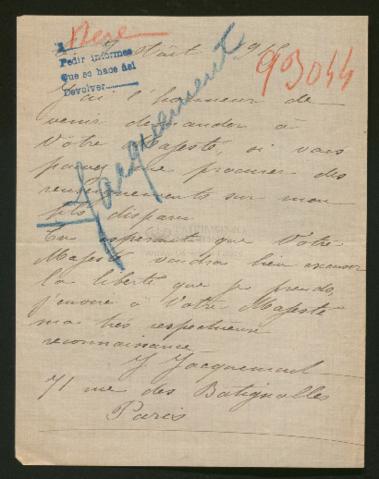 Pedir informes
Que se hace así
Devolver
93044
Jacquemont
J'ai l'honneur de
venir demander à
Votre Majesté, si vous
pouvez me procurer des
renseignements sur mon
fils disparu
En espérant que Votre
Majesté voudra bien excuser
la liberté que je prends,
j'envoie à Votre Majesté
ma très respectueuse
reconnaissance
Y Jacquemont
71 rue des Batignolles
Paris